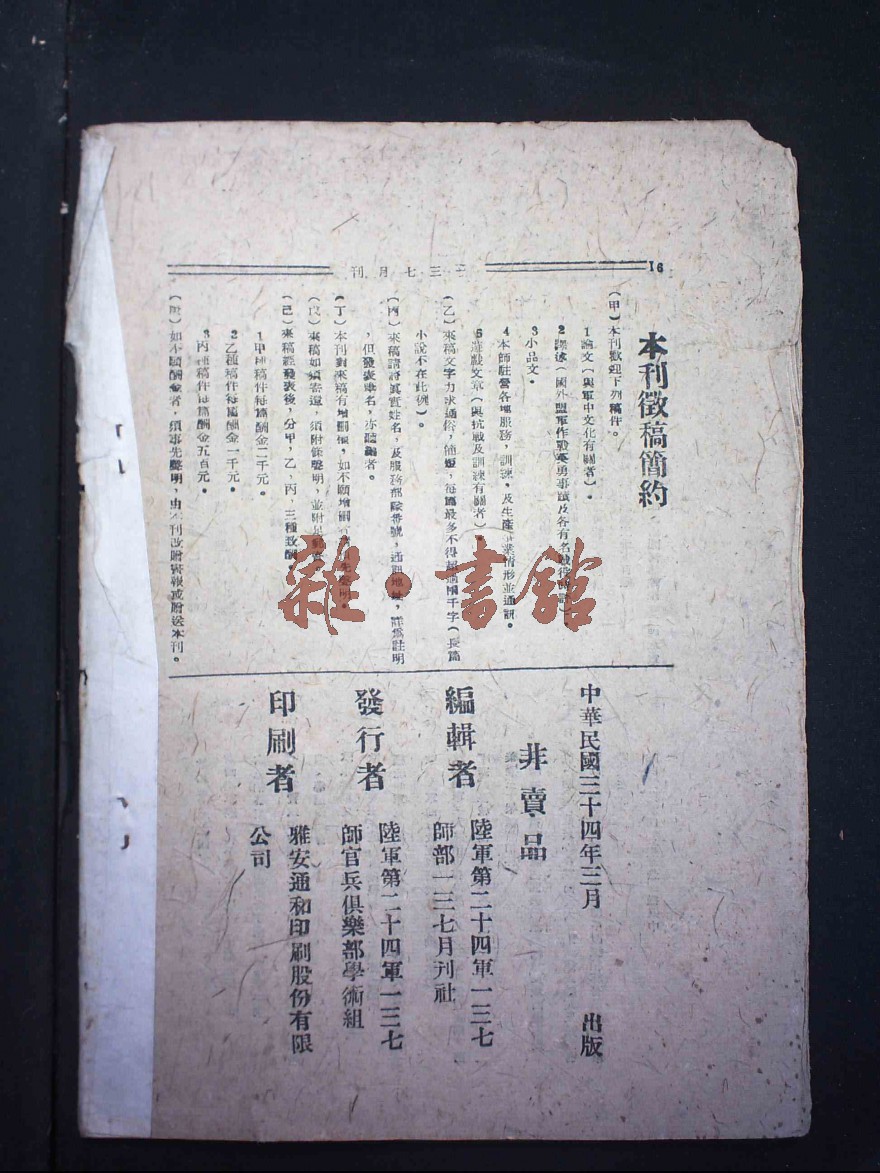 16
一三七月刊
本刊徵稿簡約
(甲)本刊歡迎下列稿件。
1論文(與軍中文化有關者)。
2譯述(國外盟軍作戰英勇事蹟及各有名戰役
3小品文。
4本師駐營各地服務,訓練,及生產 業情形並通訊。
5遊戲文章(與抗戰及訓練有關者)。
(乙)來稿文字力求通俗,簡短,每篇最多不得超過 千字(長篇
小說不在此例)。
(丙)來稿請將真實姓名,及服務部隊番號,通訊地址,詳爲註明
,但發表筆名,亦聽 者。
(丁)本刊對來稿有增刪權,如不願增刪 先聲明。
(戊)來稿如須寄還,須附條聲明,並附足
(己)來稿經發表後,分甲,乙,丙,三種致酬。
1甲種稿件每篇酬金二千元。
2乙種稿件每篇酬金一千元。
3丙種稿件每篇酬金五百元。
(庚)如不願酬金者,須事先聲明,由本刊改贈書報或贈送本刊。
中華民國三十四年三月 出版
非賣品
編輯者
陸軍第二十四軍一三七
師部一三七月刊社
發行者
陸軍第二十四軍一三七
師官兵俱樂部學術組
印刷者
雅安通和印刷股份有限
公司
雜·書館